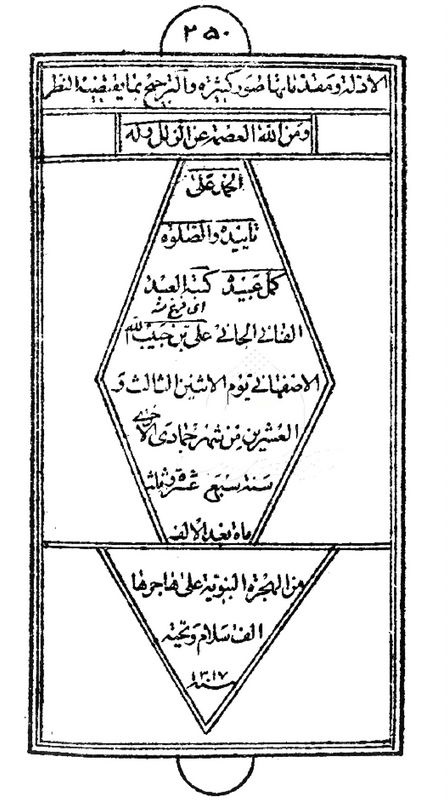 ٢٥٠
الادلة ومقدماتها صور كثيرة والترجيح بما يقتضيه النظر
ومن الله العصمة عن الزلل وله
الحمد على
تاييده والصلوة
كمل عبيد كتبة العبد
اى فرغ منه
الفانى الجانى على بن حبيب الله
الاصفهانى يوم الاثنين الثالث و
العشرين من شهر جمادى الاخرى
سنة سبع عشرة وثلث
ماة بعد الالف
من الهجرة النبوية على هاجرها
الف سلام وتحية
سنة ١٣١٧